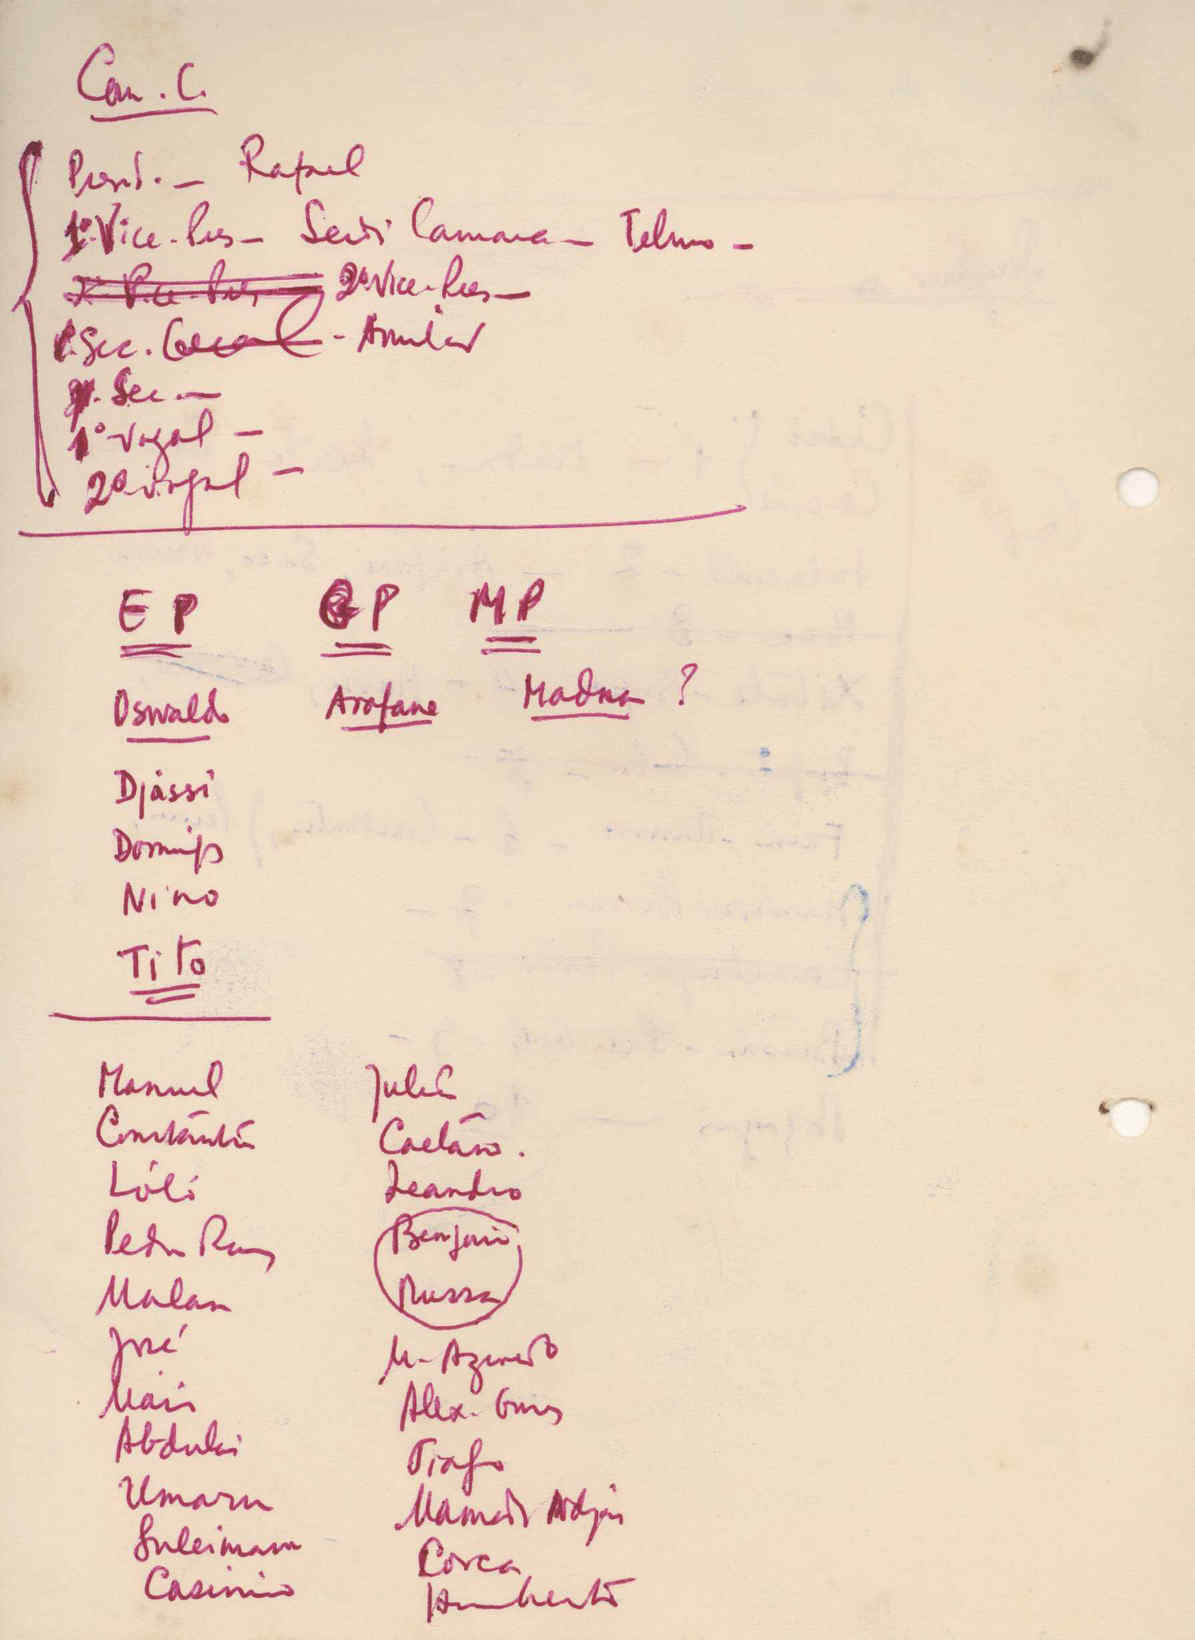 Com. C.
Presid. - Rafael
1º Vice-Pres - Seidi Camara - Telmo -
2º Vice-Pres - 2º Vice-Pres -
1º Sec. Geral - Amilcar
2º Sec. -
1º Vogal -
2º Vogal -
EP GP MP
Oswaldo Arafane Madna ?
Djassi
Domingos
Nino
Tito
Manuel Julio
Constantino Caetano.
Lóló Leandro
Pedro Ramos Benjamim
Malan Bussa
José M. Azevedo
Alex. Gomes
Abdulai Tiago
Umaru Mamadi Adjai
Suleimane Corca
Casimiro Humberto